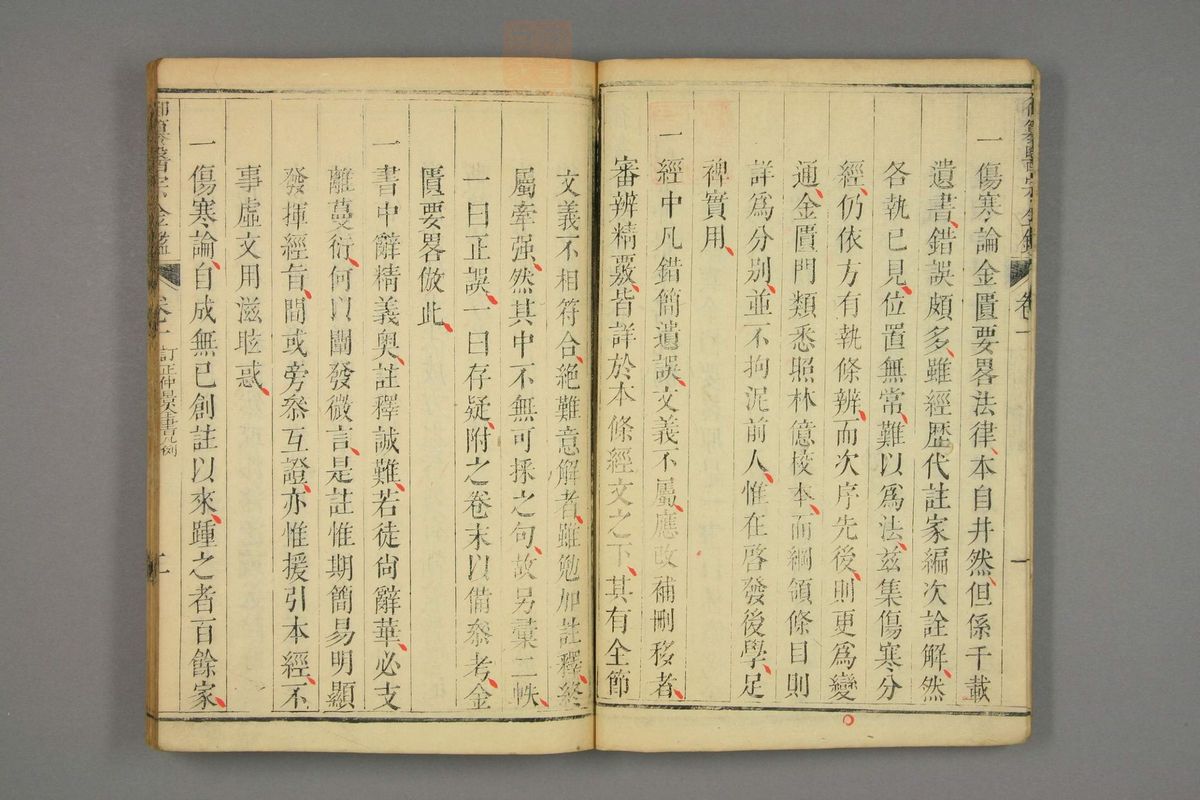 一傷寒論金匱要畧法律本自井然但係千載
遺書錯誤頗多雖經歴代註家編次詮解然
各執已見位置無常難以爲法兹集傷寒分
經仍依方有執條辨而次序先後則更爲變
通金匱門類悉照林億校本而綱領條目則
詳爲分别並不拘泥前人惟在啓發後學足
裨實用
一經中凡錯簡遺誤文義不屬應改補刪移者
審辨精覈皆詳於本條經文之下其有全節
文義不相符合絶難意解者雖勉加註釋終
屬牽强然其中不無可採之句故另彙二帙
一曰正誤一曰存疑附之卷末以備叅考金
匱要畧倣此
一書中辭精義奥註釋誠難若徒尙辭華必支
離蔓衍何以闡發微言是註惟期簡易明顯
發揮經旨間或旁叅互證亦惟援引本經不
事虛文用滋眩惑
一傷寒論自成無已創註以來踵之者百餘家
御纂醫宗金鑑
卷一
訂正仲景全書凡例
二